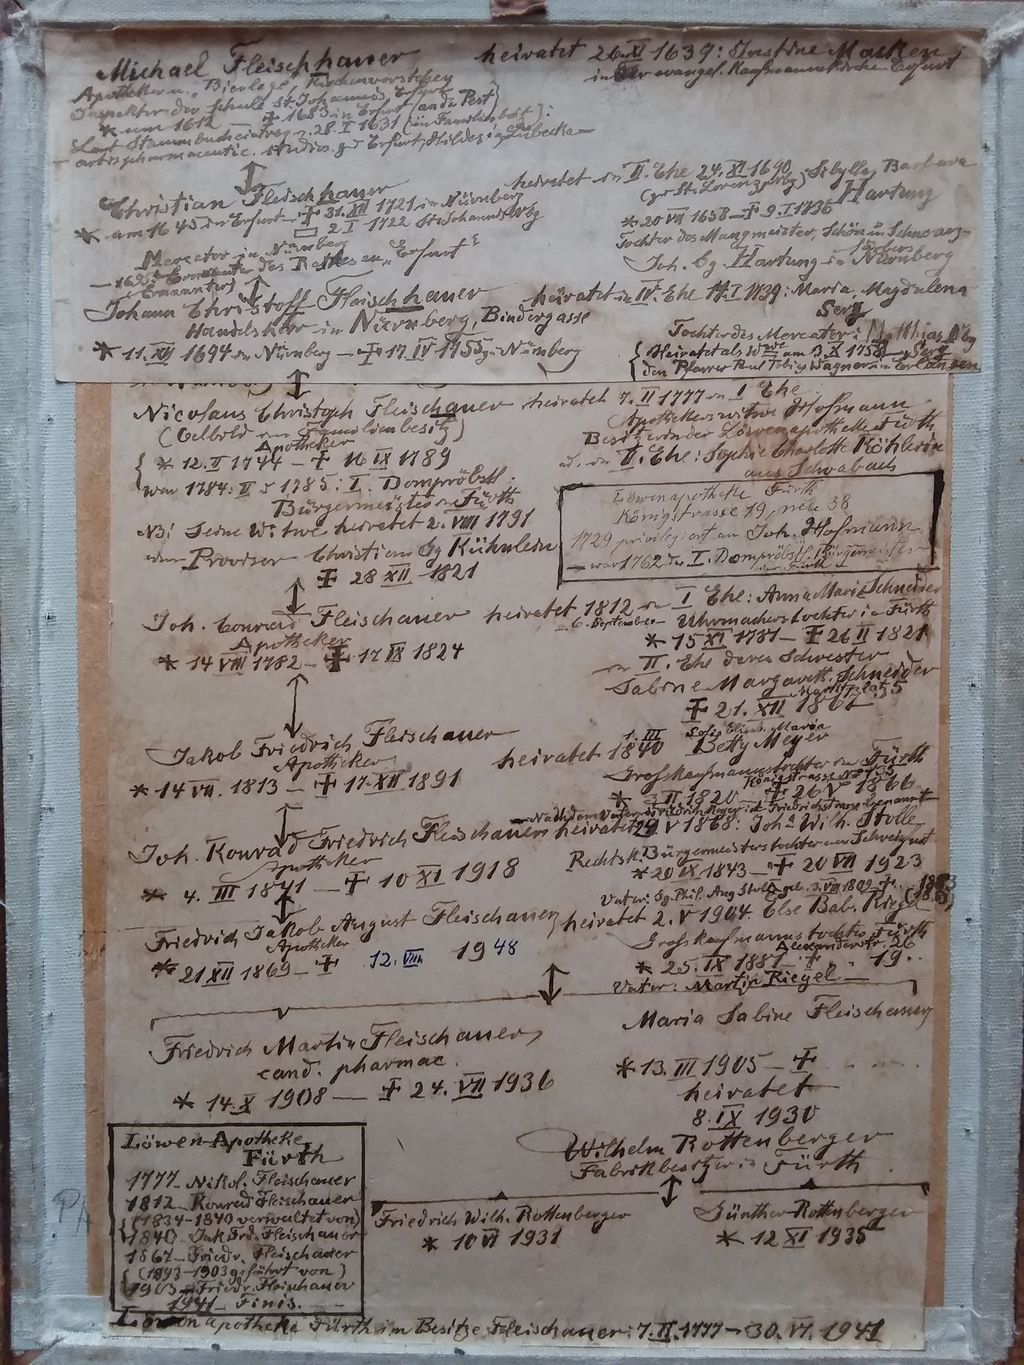 Michael Fleischhauer heiratet 26.XI 1639: Justine Marken,
in der evangel. Kaufmannskirche Erfurt
Apotheker u. "Bierlege", Kirchenvorsteher
Inspektor der Schule St. Johannis Erfurt
* um 1612 — + 1683 in Erfurt (an der Pest)
Laut Stammbucheintrag v. 28.I 1631 (im Familienbesitz):
artis pharmaceutic. studios. zu Erfurt, Hildesia, Lübecka
Christian Fleischhauer heiratet in II. Ehe 24.XI 1690
Sibylla Barbara
Hartung
* am 1645 in Erfurt — + 31.XII 1721 in Nürnberg
2 I 1722 St. Johannis Nbg
* 20 VII 1658 — + 9.I 1736
Tochter des Mangmeister, Schön u. Schwarz-
färbers
Mercator in Nürnberg
des Rathes zu "Erfurt"
Joh. Gg. Hartung in Nürnberg
Johann Christoff Fleischhauer heiratet in IV. Ehe 14.I 1739: Maria Magdalena
Serz
Handelsherr in Nürnberg, Bindergasse
Tochter des Mercator: Matthias
* 11.XII 1694 in Nürnberg — + 17 IV 1755 zu Nürnberg
Heiratet als Wwe am 3.X 1758
den Pfarrer Paul Tobias Wagner in Erlangen
Nicolaus Christoph Fleischauer heiratet 7.II 1777 in I Ehe
(Oelbild im Familienbesitz)
Apotheker
Apothekerswitwe Hofmann
Besitzerin der Löwenapotheke Fürth
* 12.II 1744 — + 16 IX 1789
in II. Ehe: Sophie Charlotte Köhlerin
aus Schwabach
war 1784: II u 1785: I. Dompröbstl.
Bürgermeister in Fürth
NB! Seine Witwe heiratet 2. VIII 1791
den Provisor Christian Gg Kühnlein
+ 28 XII 1821
Löwenapotheke Fürth
Königstrasse 19, neu 38
1729 privilegiert an Joh. Hofmann
war 1762 der I. Dompröbstl. Bürgermeister
in Fürth
Joh. Conrad Fleischauer heiratet 1812 in I Ehe: Anna Maria Schneider
6. September Uhrmacherstochter in Fürth
Apotheker
* 14 VIII 1782 — + 17 IX 1824
* 15 XI 1781 — + 26 II 1821
in II. Ehe deren Schwester
Sabine Margareth. Schneider
+ 21. XII 1862
Jakob Friedrich Fleischauer heiratet 1.III 1840 Bety Meyer
Apotheker
Grosskaufmannstochter in Fürth
* 14 VII. 1813 — + 17 XII 1891
* II 1820 + 26 V 1866
Joh. Konrad Friedrich Fleischauer heiratet 24 V 1868: Joh. Wilh. Stolle
Apotheker
Rechtsk. Bürgermeisterstochter aus Schweinfurt
* 4. III 1841 — + 10 XI 1918
* 20 IX 1843 — + 20 VII 1923
Vater: Gg. Phil. Aug. Stolle geb. 3.VII 1809 +
Friedrich Jakob August Fleischauer, heiratet 2. V 1904. Else Bab. Riegel
Apotheker
Grosskaufmannstochter Fürth
Alexanderstr. 26
* 21 XII 1869 — + 12. VIII 1948
* 25. IX 1881 — + . . . 19 . .
Vater: Martin Riegel
Friedrich Martin Fleischauer,
cand. pharmac.
* 14. X 1908 — + 24. VII 1936
Maria Sabine Fleischauer
* 13. III 1905 — +
heiratet
8. IX 1930
Wilhelm Rottenberger
Fabrikbesitzer in Fürth
Friedrich Wilh. Rottenberger
* 10 VI 1931
Günther Rottenberger
* 12 XI 1935
Löwen-Apotheke,
Fürth
1777 – Nikol. Fleischauer
1812 – Konrad Fleischauer
(1834–1840 verwaltet von)
1840 – Jak. Fri. Fleischauer
1867 – Friedr. Fleischauer
(1893–1903 geführt von)
1903 – Friedr. Fleischauer
1941 – Finis.
Löwenapotheke Fürth im Besitze Fleischauer: 7.II.1777 — 30.VI.1941